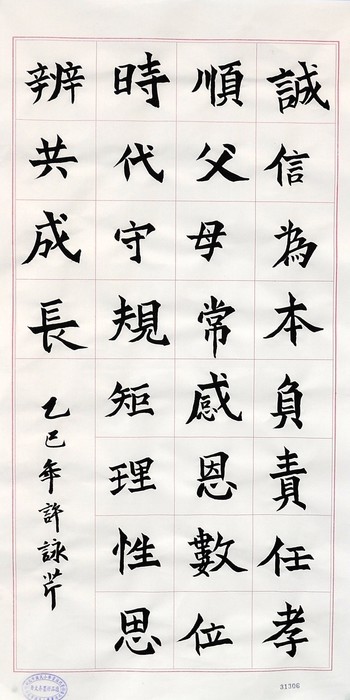 誠信為本負責任孝
順父母常感恩數位
時代守規矩理性思
辨共成長
乙巳年許詠芹
31306